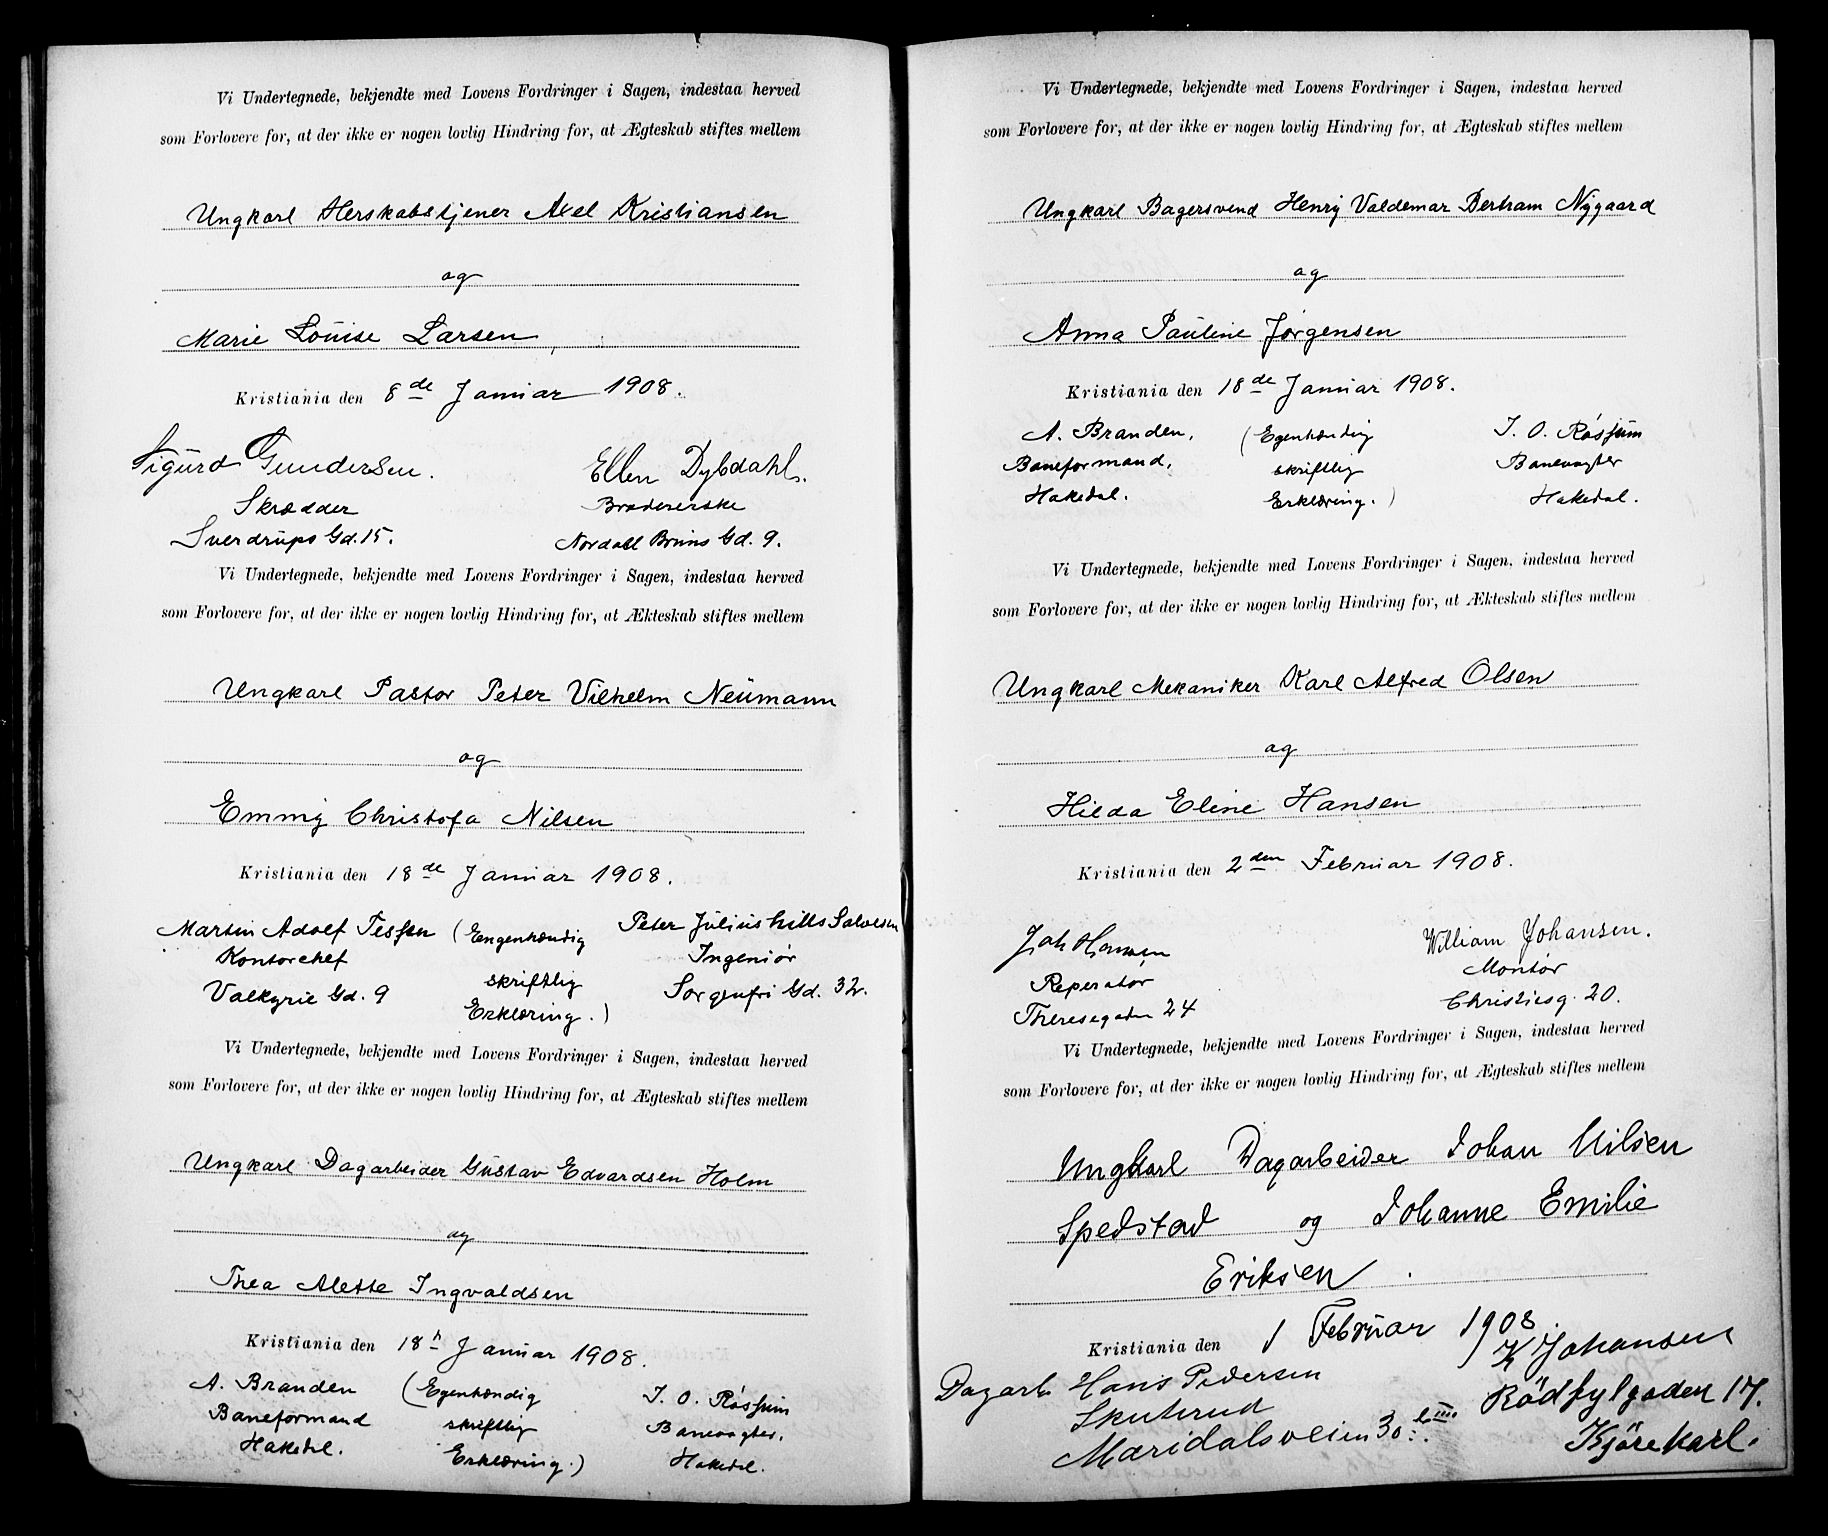 Vi Undertegnede, bekjendte med Lovens Fordringer i Sagen, indestaa herved
som Forlovere for, at der ikke er nogen lovlig Hindring for, at Ægteskab stiftes mellem
Ungkarl Herskabstjener Axel Kristiansen
og
Marie Louise Larsen,
Kristiania den 8de Januar 1908.
Sigurd Gundersen. Ellen Dybdahl.
Skrædder Brodererske
Sverdrups Gd. 15. Nordahl Bruns Gd. 9.
Vi Undertegnede, bekjendte med Lovens Fordringer i Sagen, indestaa herved
som Forlovere for, at der ikke er nogen lovlig Hindring for, at Ækteskab stiftes mellem
Ungkarl Pastor Peter Vilhelm Neumann
og
Emmy Christofa Nilsen
Kristiania den 18de Januar 1908.
Martin Adolf (Engenhændig Peter Julius Salvesen
Kontorchef skriftlig Ingeniør
Valkyrie Gd. 9 Erklæring.) Sorgenfri Gd. 32.
Vi Undertegnede, bekjendte med Lovens Fordringer i Sagen, indestaa herved
som Forlovere for, at der ikke er nogen lovlig Hindring for, at Ægteskab stiftes mellem
Ungkarl Dagarbeider Gustav Edvardsen Holm
og
Thea Alette Ingvaldsen
Kristiania den 18n Januar 1908.
A. Branden (Egenhændig I. O. Røssum
Baneformand skriftlig Banevogter.
Hakedal. Erklæring.) Hakedal.
Vi Undertegnede, bekjendte med Lovens Fordringer i Sagen, indestaa herved
som Forlovere for, at der ikke er nogen lovlig Hindring for, at Ægteskab stiftes mellem
Ungkarl Bagersvend Henry Valdemar Bertram Nygaard
og
Anna Pauline Jørgensen
Kristiania den 18de Januar 1908.
A. Branden, (Egenhændig I. O. Røssum
Baneformand, skriftlig Banevogter
Hakedal. Erklæring.) Hakedal.
Vi Undertegnede, bekjendte med Lovens Fordringer i Sagen, indestaa herved
som Forlovere for, at der ikke er nogen lovlig Hindring for, at Ækteskab stiftes mellem
Ungkarl Mekaniker Karl Alfred Olsen
og
Hilda Eline Hansen
Kristiania den 2den Februar 1908.
Joh Hansen William Johansen.
Reperatør Montør
Theresegaden 24 Christiesg. 20.
Vi Undertegnede, bekjendte med Lovens Fordringer i Sagen, indestaa herved
som Forlovere for, at der ikke er nogen lovlig Hindring for, at Ægteskab stiftes mellem
Ungkarl Dagarbeider Johan Nilsen
Spedstad og Johanne Emilie
Eriksen.
Kristiania den 1 Februar 1908.
Dagarb. Hans Pedersen K Johansen
Skuterud Rödfylgaden 17.
Maridalsveien 30 Kjörekarl.